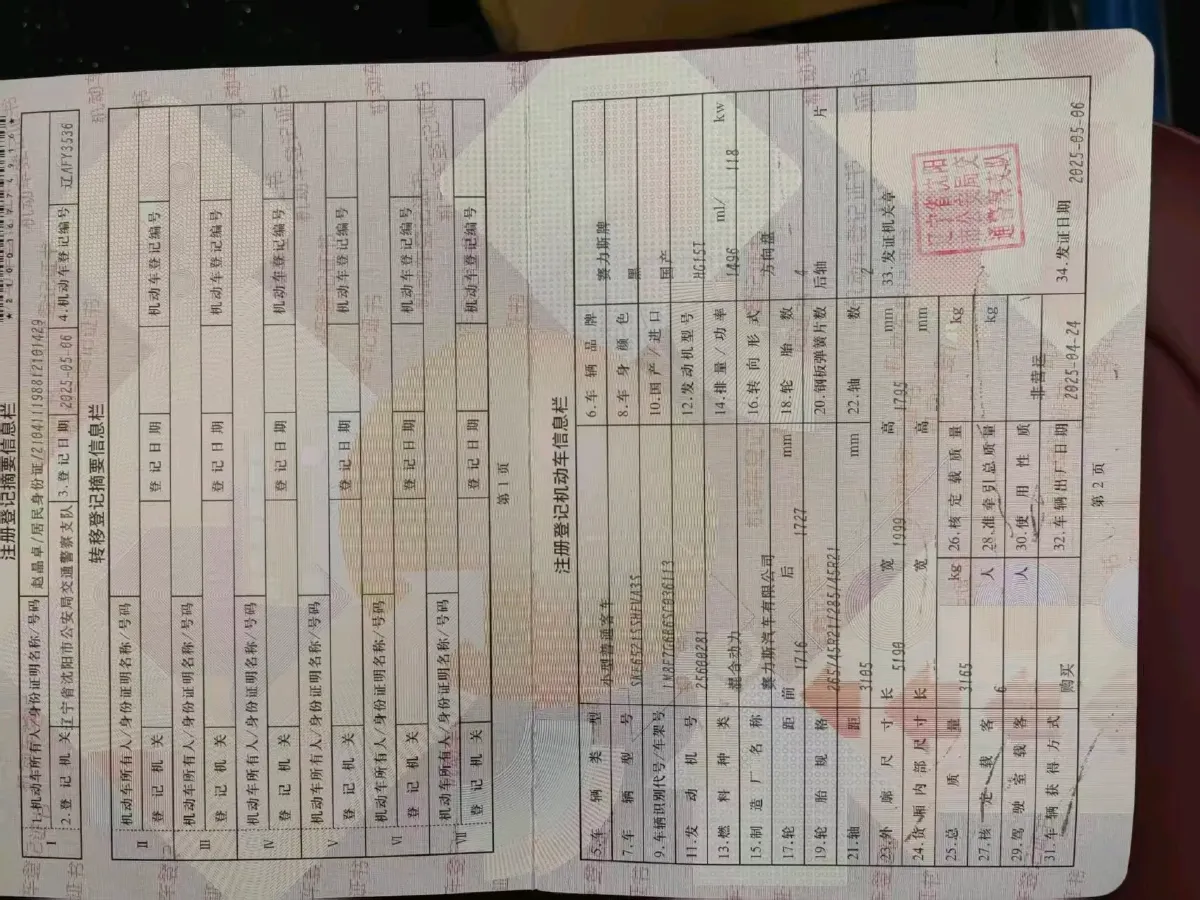 注册登记摘要信息栏
Ⅰ 1.机动车所有人/身份证明名称/号码 赵晶卓/居民身份证/210411198812101429
2.登记机关 辽宁省沈阳市公安局交通警察支队 3.登记日期 2025-05-06 4.机动车登记编号 辽AFY3536
转移登记摘要信息栏
Ⅱ 机动车所有人/身份证明名称/号码
登记机关 登记日期 机动车登记编号
Ⅲ 机动车所有人/身份证明名称/号码
登记机关 登记日期 机动车登记编号
Ⅳ 机动车所有人/身份证明名称/号码
登记机关 登记日期 机动车登记编号
Ⅴ 机动车所有人/身份证明名称/号码
登记机关 登记日期 机动车登记编号
Ⅵ 机动车所有人/身份证明名称/号码
登记机关 登记日期 机动车登记编号
Ⅶ 机动车所有人/身份证明名称/号码
登记机关 登记日期 机动车登记编号
第 1 页
注册登记机动车信息栏
5.车辆类型 小型普通客车 6.车辆品牌 赛力斯牌
7.车辆型号 8.车身颜色 黑
9.车辆识别代号/车架号 10.国产/进口 国产
11.发动机号 25600281 12.发动机型号 HG15T
13.燃料种类 混合动力 14.排量/功率 1496 ml/ 118 kw
15.制造厂名称 赛力斯汽车有限公司 16.转向形式 方向盘
17.轮距 前 1716 后 1727 mm 18.轮胎数 4
19.轮胎规格 265/45R21/285/45R21 20.钢板弹簧片数 后轴 片
21.轴距 3105 mm 22.轴数 2
23.外廓尺寸 长 5190 宽 1999 高 1795 mm
24.货厢内部尺寸 长 宽 高 mm
33.发证机关章
辽宁省沈阳市公安局交通警察支队
25.总质量 3165 kg 26.核定载质量 kg
27.核定载客 6 人 28.准牵引总质量 kg
29.驾驶室载客 人 30.使用性质 非营运
31.车辆获得方式 购买 32.车辆出厂日期 2025-04-24
34.发证日期 2025-05-06
第 2 页